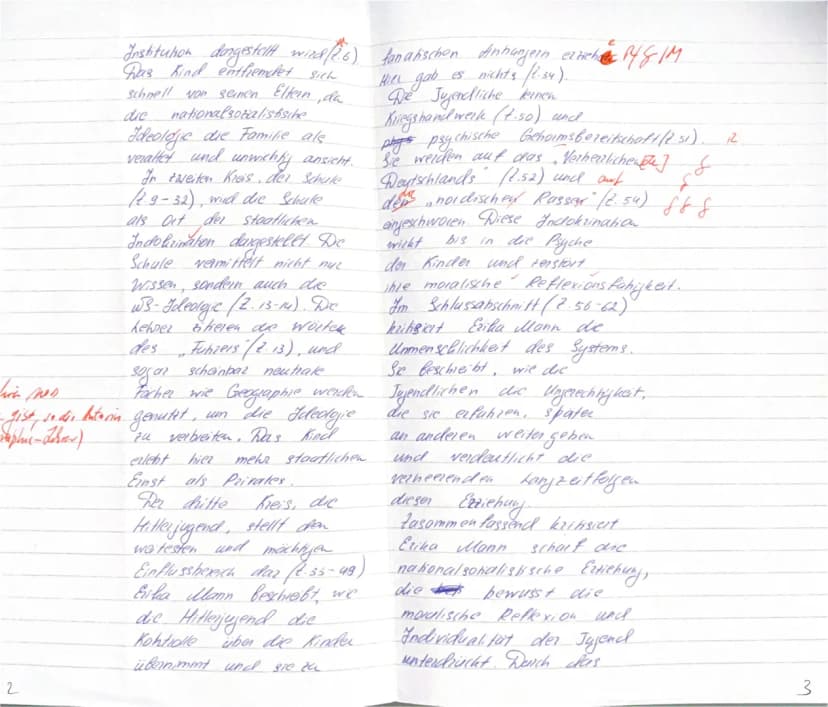 Institution dargestellt wird (Z. 6)
Das Kind entfremdet sich
schnell von seinen Eltern, da
die nationalsozialistische
Ideologie die Familie als
veraltet und unwichtig ansieht.
In zweiten Kreis, der Schule
(Z. 9-32), wird die Schule
als Ort der staatlichen
Indoktrination dargestellt. Die
Schule vermittelt nicht nur
Wissen, sondern auch die
NS-Ideologie (Z. 13-14). Die
Lehrer zitieren die Worte
des "Führers" (Z. 13), und
sogar scheinbar neutrale
Fächer wie Geographie werden
genutzt, um die Ideologie
zu verbreiten. Das Kind
erlebt hier mehr staatlichen
Einst als Privates.
Der dritte Kreis, die
Hitlerjugend, stellt den
weitesten und mächtigen
Einflussbereich dar (Z. 33-49)
Erika Mann beschreibt, wie
die Hitlerjugend die
Kontrolle über die Kinder
übernimmt und sie zu
2
so die Autorin
fanatischen Anhängern erziehe R/G/M
Hier gab es nichts (Z. 34).
Die Jugendliche lernen
Kriegshandwerk (Z. 50) und
psychische Gehorsbereitschaft (Z. 51). R
Sie werden auf das "Vorherrlichen
Deutschlands" (Z. 52) und auf
die "nordischen Rasse" (Z. 54)
eingeschworen Diese Indoktrination
wirkt bis in die Psyche
der Kinder und zerstört
ihre moralische Reflexionsfähigkeit.
Im Schlussabschnitt (Z. 56-62)
kritisiert Erika Mann die
Unmenschlichkeit des Systems.
Sie beschreibt, wie die
Jugendlichen die Ungerechtigkeit,
die sie erfahren, später
an anderen weitergeben
und verdeutlicht die
verheerenden Langzeitfolgen
dieser Erziehung.
Zusammenfassend kritisiert
Erika Mann scharf die
nationalsozialistische Erziehung,
die bewusst die
moralische Reflexion und
Individualität der Jugend
unterdrückt. Durch das
3